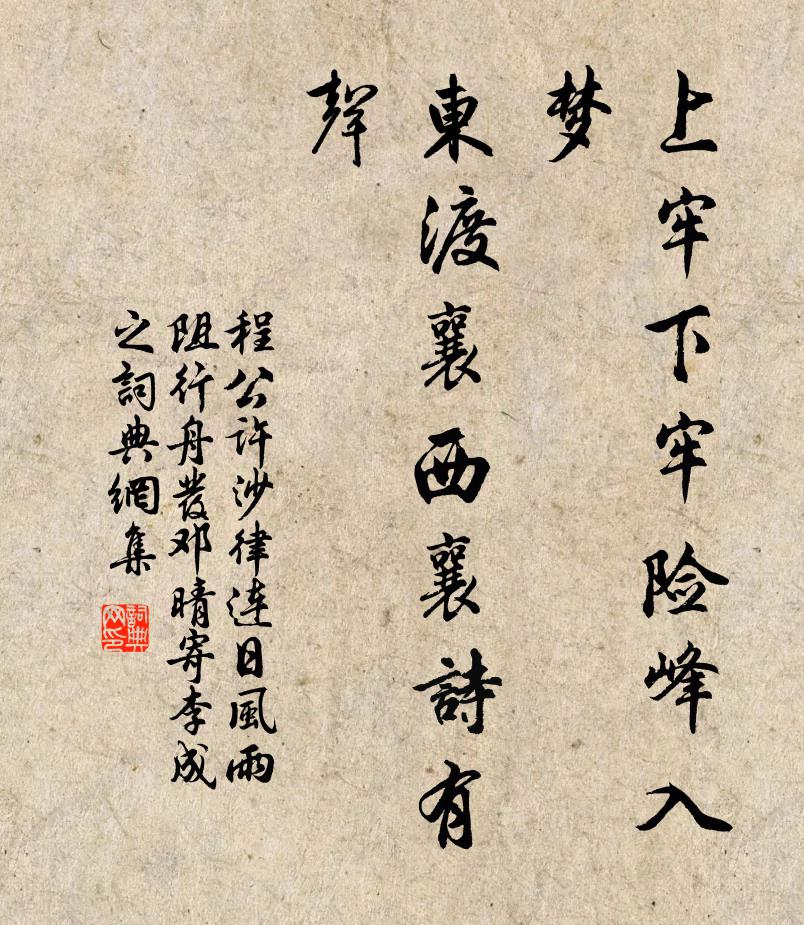 上牢下牢险峰入
梦
東渡襄西襄詩有
聲
程公许沙律連日風雨
阻行舟發邓晴寄李成
之詞典網集
詞典網印